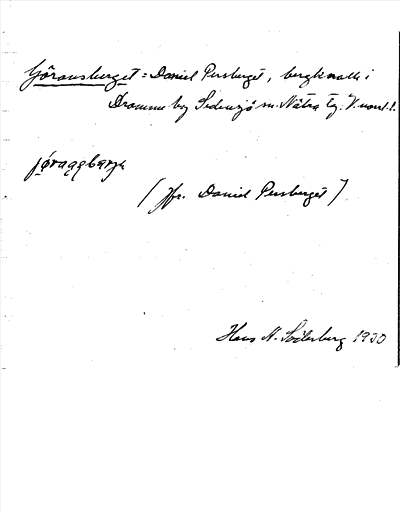 Göransberget = Daniel Persberget, bergknalle i
Dromme by Sidensjö sn. Nätra tg. V.norrl. l.
jøranṣbærjə
(Jfr. Daniel Persberget)
Hans N. Söderberg 1930